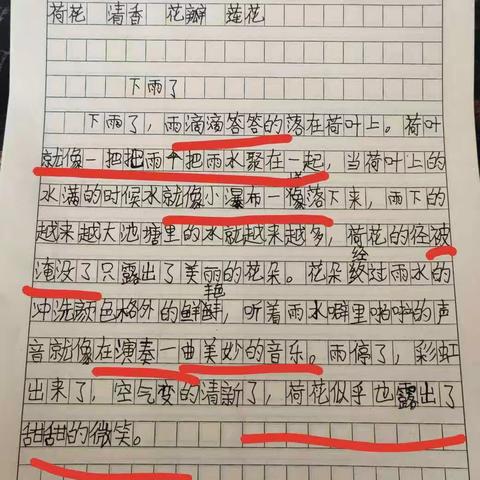 荷花 清香 花瓣 莲花
下雨了
下雨了，雨滴滴答答的落在荷叶上。荷叶
就像一把把雨伞把雨水聚在一起，当荷叶上的
水满的时候水就像小瀑布一样落下来，雨下的
越来越大池塘里的水就越来越多，荷花的径被
淹没了只露出了美丽的花朵。花朵经过雨水的
冲洗颜色格外的鲜艳，听着雨水噼里啪啦的声
音就像在演奏一曲美妙的音乐。雨停了，彩虹
出来了，空气变的清新了，荷花似乎也露出了
甜甜的微笑。